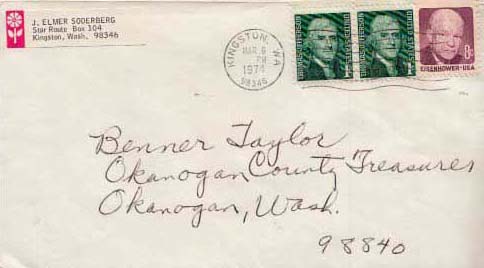 J. ELMER SODERBERG
Star Route Box 104
Kingston, Wash. 98346
KINGSTON, WA
MAR 6
PM
1974
98346
1¢
1¢
8¢
EISENHOWER·USA
Benner Taylor
Okanogan County Treasures
Okanogan, Wash.
98840